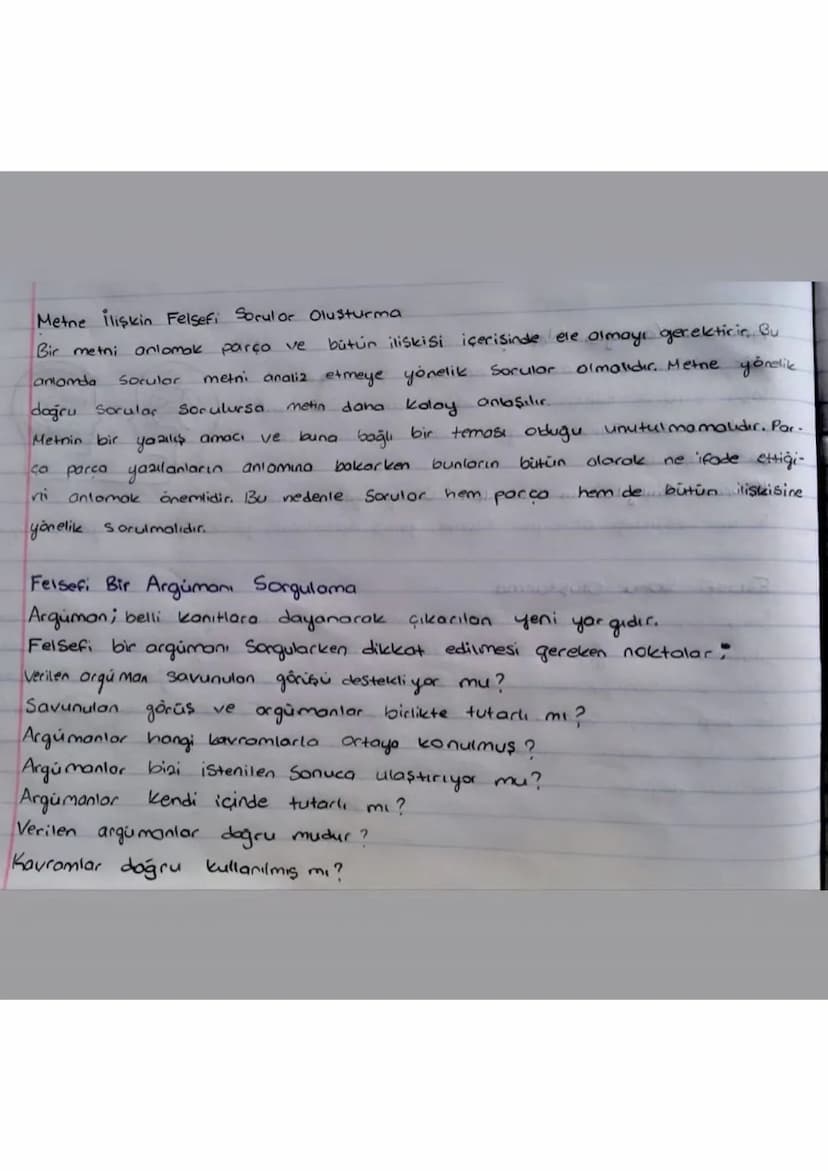 Metne İlişkin Felsefi Sorular Oluşturma
Bir metni anlamak parça ve bütün ilişkisi içerisinde ele almayı gerektirir. Bu
anlamda sorular metni analiz etmeye yönelik sorular olmalıdır. Metne yönelik
doğru sorular sorulursa metin daha kolay anlaşılır.
Metnin bir yazılış amacı ve buna bağlı bir teması olduğu unutulmamalıdır. Par-
ça parça yazılanların anlamına bakarken bunların bütün olarak ne ifade ettiği-
ni anlamak önemlidir. Bu nedenle sorular hem parça hem de bütün ilişkisine
yönelik sorulmalıdır.
Felsefi Bir Argümanı Sorgulama
Argüman; belli kanıtlara dayanarak çıkarılan yeni yargıdır.
Felsefi bir argümanı sorgularken dikkat edilmesi gereken noktalar;
Verilen argüman savunulan görüşü destekliyor mu?
Savunulan görüş ve argümanlar birlikte tutarlı mı?
Argümanlar hangi kavramlarla ortaya konulmuş?
Argümanlar bizi istenilen sonuca ulaştırıyor mu?
Argümanlar kendi içinde tutarlı mı?
Verilen argümanlar doğru mudur?
Kavramlar doğru kullanılmış mı?